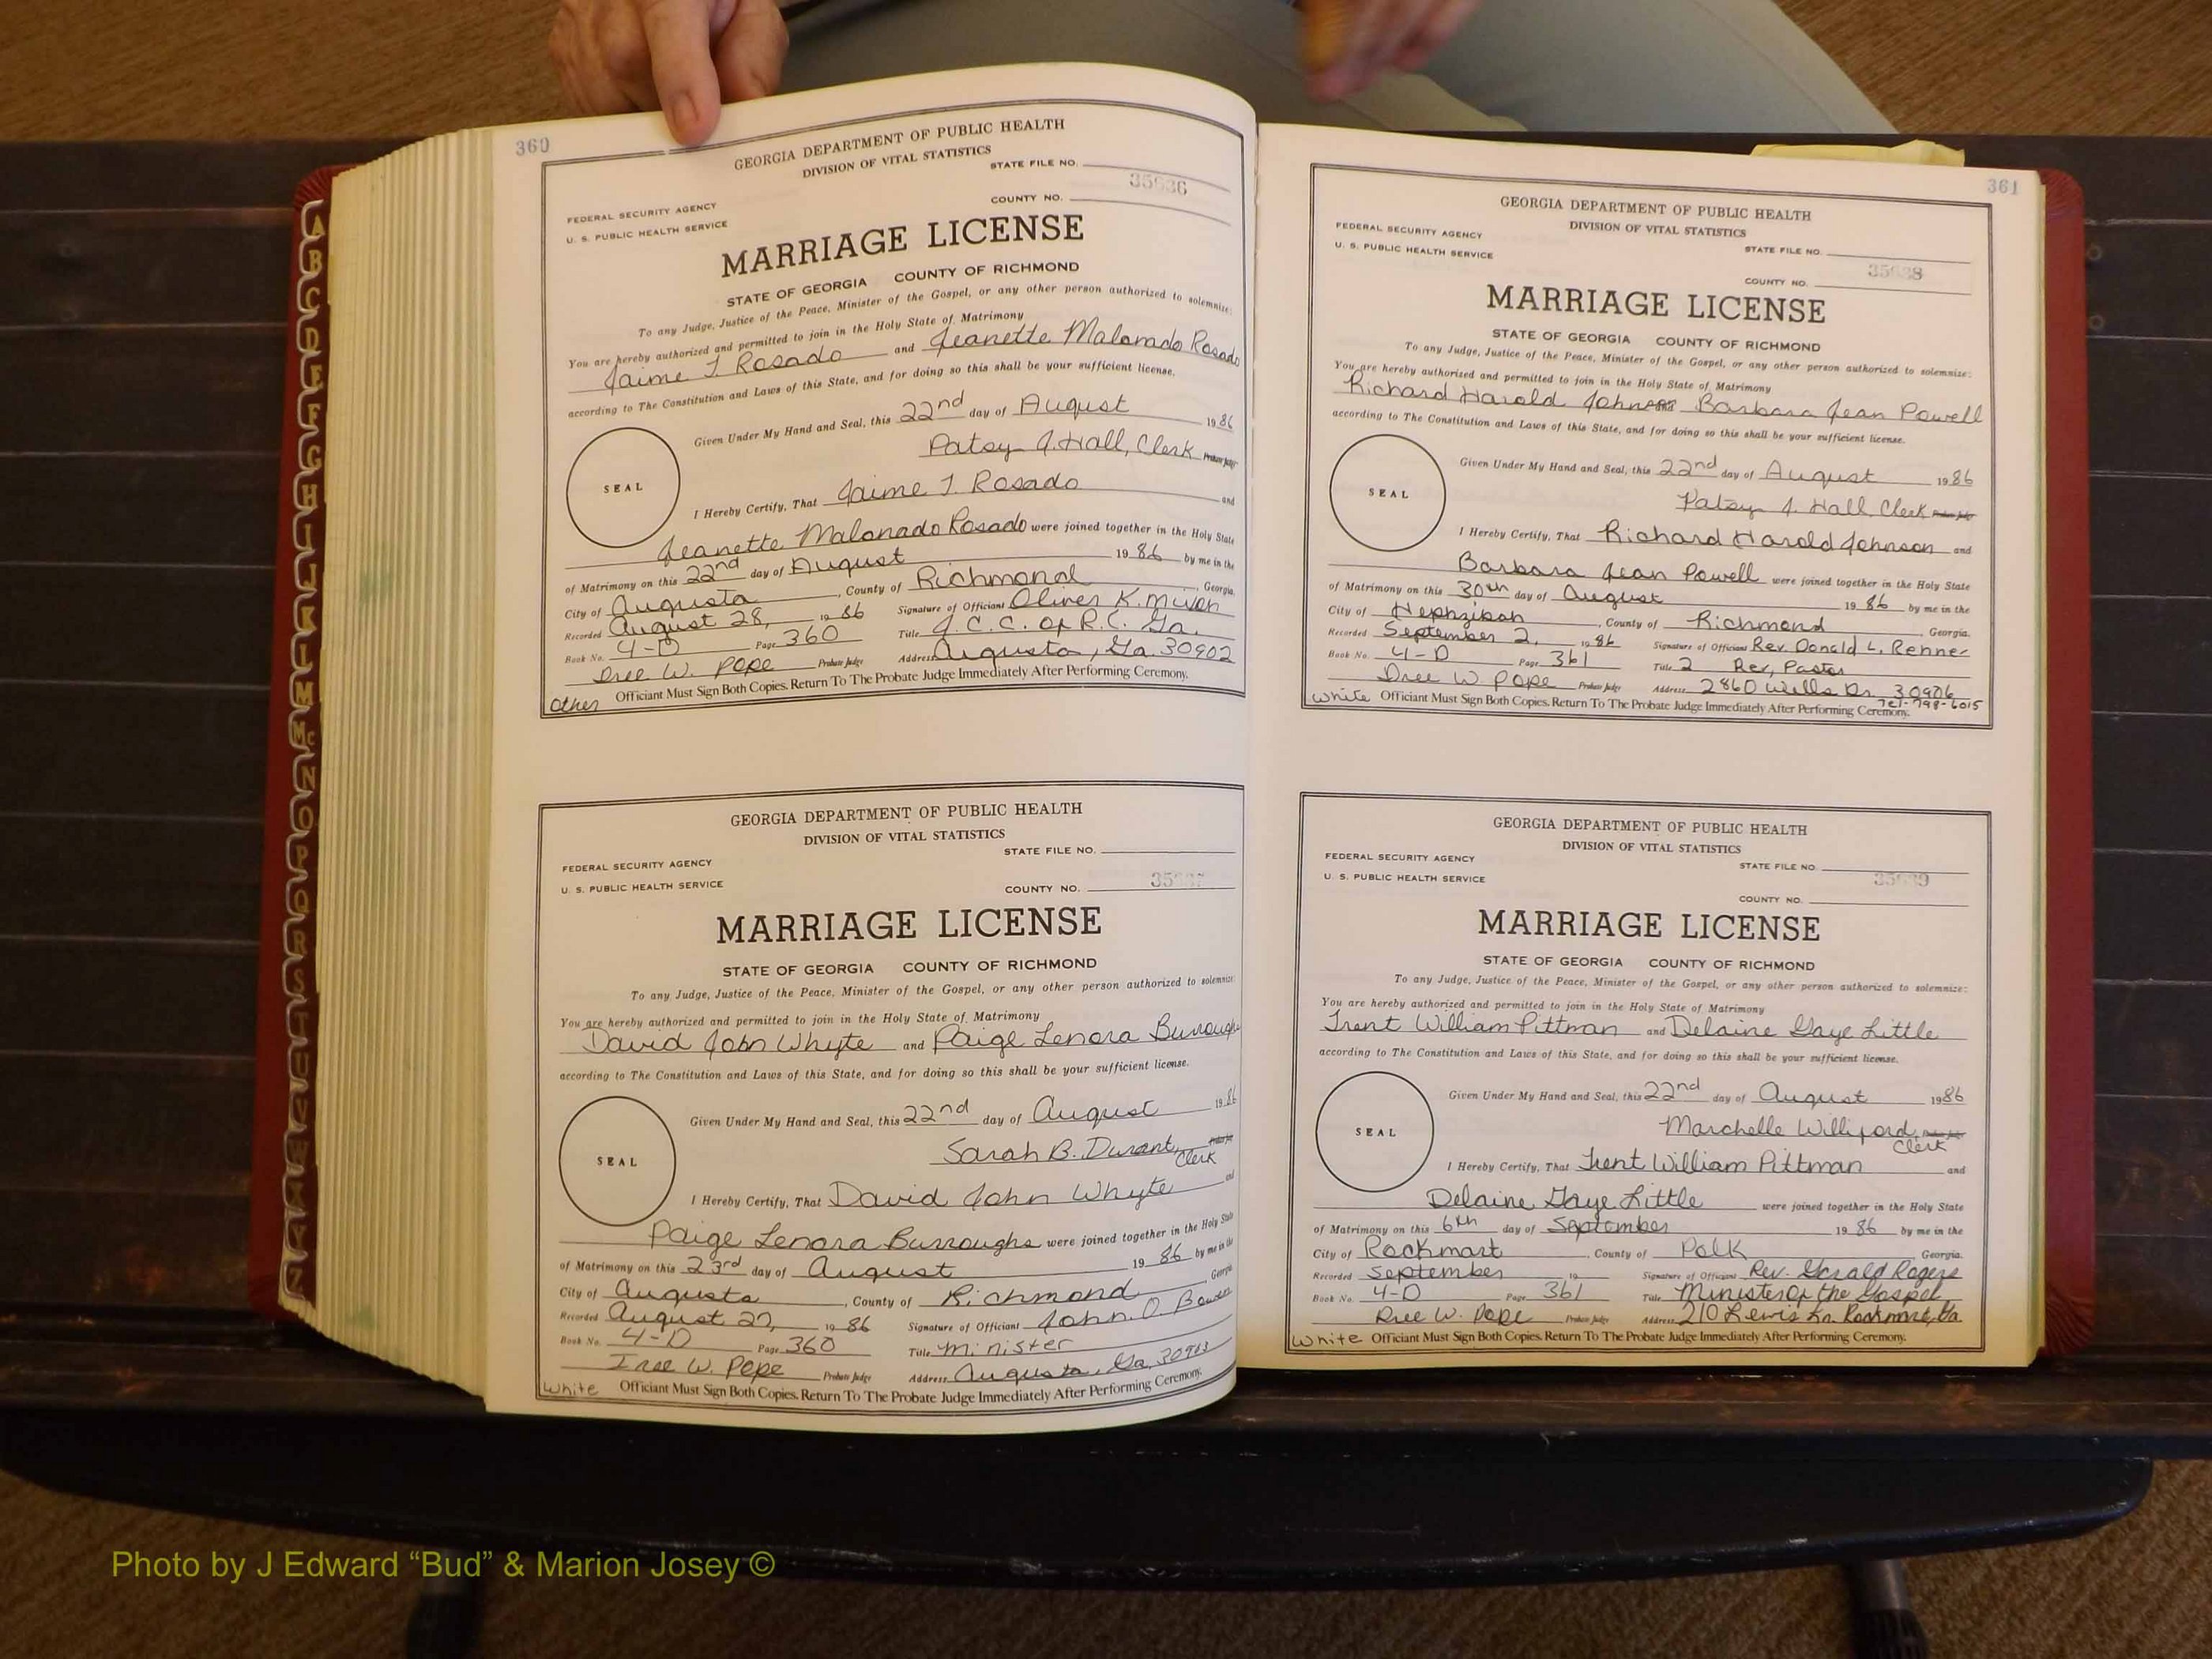 360
GEORGIA DEPARTMENT OF PUBLIC HEALTH
DIVISION OF VITAL STATISTICS
STATE FILE NO.
35636
FEDERAL SECURITY AGENCY
COUNTY NO.
U. S. PUBLIC HEALTH SERVICE
MARRIAGE LICENSE
STATE OF GEORGIA COUNTY OF RICHMOND
To any Judge, Justice of the Peace, Minister of the Gospel, or any other person authorized to solemnize:
You are hereby authorized and permitted to join in the Holy State of Matrimony
Jaime J. Rosado and Jeanette Malonado Rosado
according to The Constitution and Laws of this State, and for doing so this shall be your sufficient license.
Given Under My Hand and Seal, this 22nd day of August 1986
Patsy J. Hall, Clerk Probate Judge
SEAL
I Hereby Certify, That Jaime J. Rosado and
Jeanette Malonado Rosado were joined together in the Holy State
of Matrimony on this 22nd day of August 19 86 by me in the
City of Augusta, County of Richmond, Georgia.
Recorded August 28, 19 86 Signature of Officiant Oliver K. Mixon
Book No. 4-D Page 360 Title J. C. C. of R. C. Ga.
Iree W. Pope Probate Judge Address Augusta, Ga. 30902
Other Officiant Must Sign Both Copies. Return To The Probate Judge Immediately After Performing Ceremony.
GEORGIA DEPARTMENT OF PUBLIC HEALTH
DIVISION OF VITAL STATISTICS
STATE FILE NO.
FEDERAL SECURITY AGENCY
U. S. PUBLIC HEALTH SERVICE
COUNTY NO.
MARRIAGE LICENSE
STATE OF GEORGIA COUNTY OF RICHMOND
To any Judge, Justice of the Peace, Minister of the Gospel, or any other person authorized to solemnize:
You are hereby authorized and permitted to join in the Holy State of Matrimony
David John Whyte and Paige Lenora Burroughs
according to The Constitution and Laws of this State, and for doing so this shall be your sufficient license.
Given Under My Hand and Seal, this 22nd day of August 1986
Sarah B. Durant, Probate Judge
Clerk
SEAL
I Hereby Certify, That David John Whyte and
Paige Lenora Burroughs were joined together in the Holy State
of Matrimony on this 23rd day of August 19 86 by me in the
City of Augusta, County of Richmond, Georgia
Recorded August 27, 19 86 Signature of Officiant John. O. Bowen
Book No. 4-D Page 360 Title Minister
Iree W. Pope Probate Judge Address Augusta, Ga. 30903
White Officiant Must Sign Both Copies. Return To The Probate Judge Immediately After Performing Ceremony.
361
GEORGIA DEPARTMENT OF PUBLIC HEALTH
DIVISION OF VITAL STATISTICS
FEDERAL SECURITY AGENCY
U. S. PUBLIC HEALTH SERVICE
STATE FILE NO.
35638
COUNTY NO.
MARRIAGE LICENSE
STATE OF GEORGIA COUNTY OF RICHMOND
To any Judge, Justice of the Peace, Minister of the Gospel, or any other person authorized to solemnize:
You are hereby authorized and permitted to join in the Holy State of Matrimony
Richard Harold Johnson and Barbara Jean Powell
according to The Constitution and Laws of this State, and for doing so this shall be your sufficient license.
Given Under My Hand and Seal, this 22nd day of August 1986
Patsy J. Hall, Clerk Probate Judge
SEAL
I Hereby Certify, That Richard Harold Johnson and
Barbara Jean Powell were joined together in the Holy State
of Matrimony on this 30th day of August 19 86 by me in the
City of Hephzibah, County of Richmond, Georgia.
Recorded September 2, 19 86 Signature of Officiant Rev. Donald L. Renner
Book No. 4-D Page 361 Title 2 Rev, Pastor
Iree W Pope Probate Judge Address 2860 Wells Dr. 30906
Tel-798-6015
White Officiant Must Sign Both Copies. Return To The Probate Judge Immediately After Performing Ceremony.
GEORGIA DEPARTMENT OF PUBLIC HEALTH
DIVISION OF VITAL STATISTICS
FEDERAL SECURITY AGENCY
STATE FILE NO.
U. S. PUBLIC HEALTH SERVICE
35639
COUNTY NO.
MARRIAGE LICENSE
STATE OF GEORGIA COUNTY OF RICHMOND
To any Judge, Justice of the Peace, Minister of the Gospel, or any other person authorized to solemnize:
You are hereby authorized and permitted to join in the Holy State of Matrimony
Trent William Pittman and Delaine Gaye Little
according to The Constitution and Laws of this State, and for doing so this shall be your sufficient license.
Given Under My Hand and Seal, this 22nd day of August 1986
Marchelle Williford, Probate Judge
Clerk
SEAL
I Hereby Certify, That Trent William Pittman and
Delaine Gaye Little were joined together in the Holy State
of Matrimony on this 6th day of September 19 86 by me in the
City of Rockmart, County of Polk Georgia.
Recorded September 19 Signature of Officiant Rev. Gerald Rogers
Book No. 4-D Page 361 Title Minister Of the Gospel
Iree W. Pope Probate Judge Address 210 Lewis Ln. Rockmart, Ga
White Officiant Must Sign Both Copies. Return To The Probate Judge Immediately After Performing Ceremony.
A
B
C
D
E
F
G
H
I
J
K
L
M
Mc
N
O
P
Q
R
S
T
U
V
W
X
Y
Z
Photo by J Edward “Bud” & Marion Josey ©